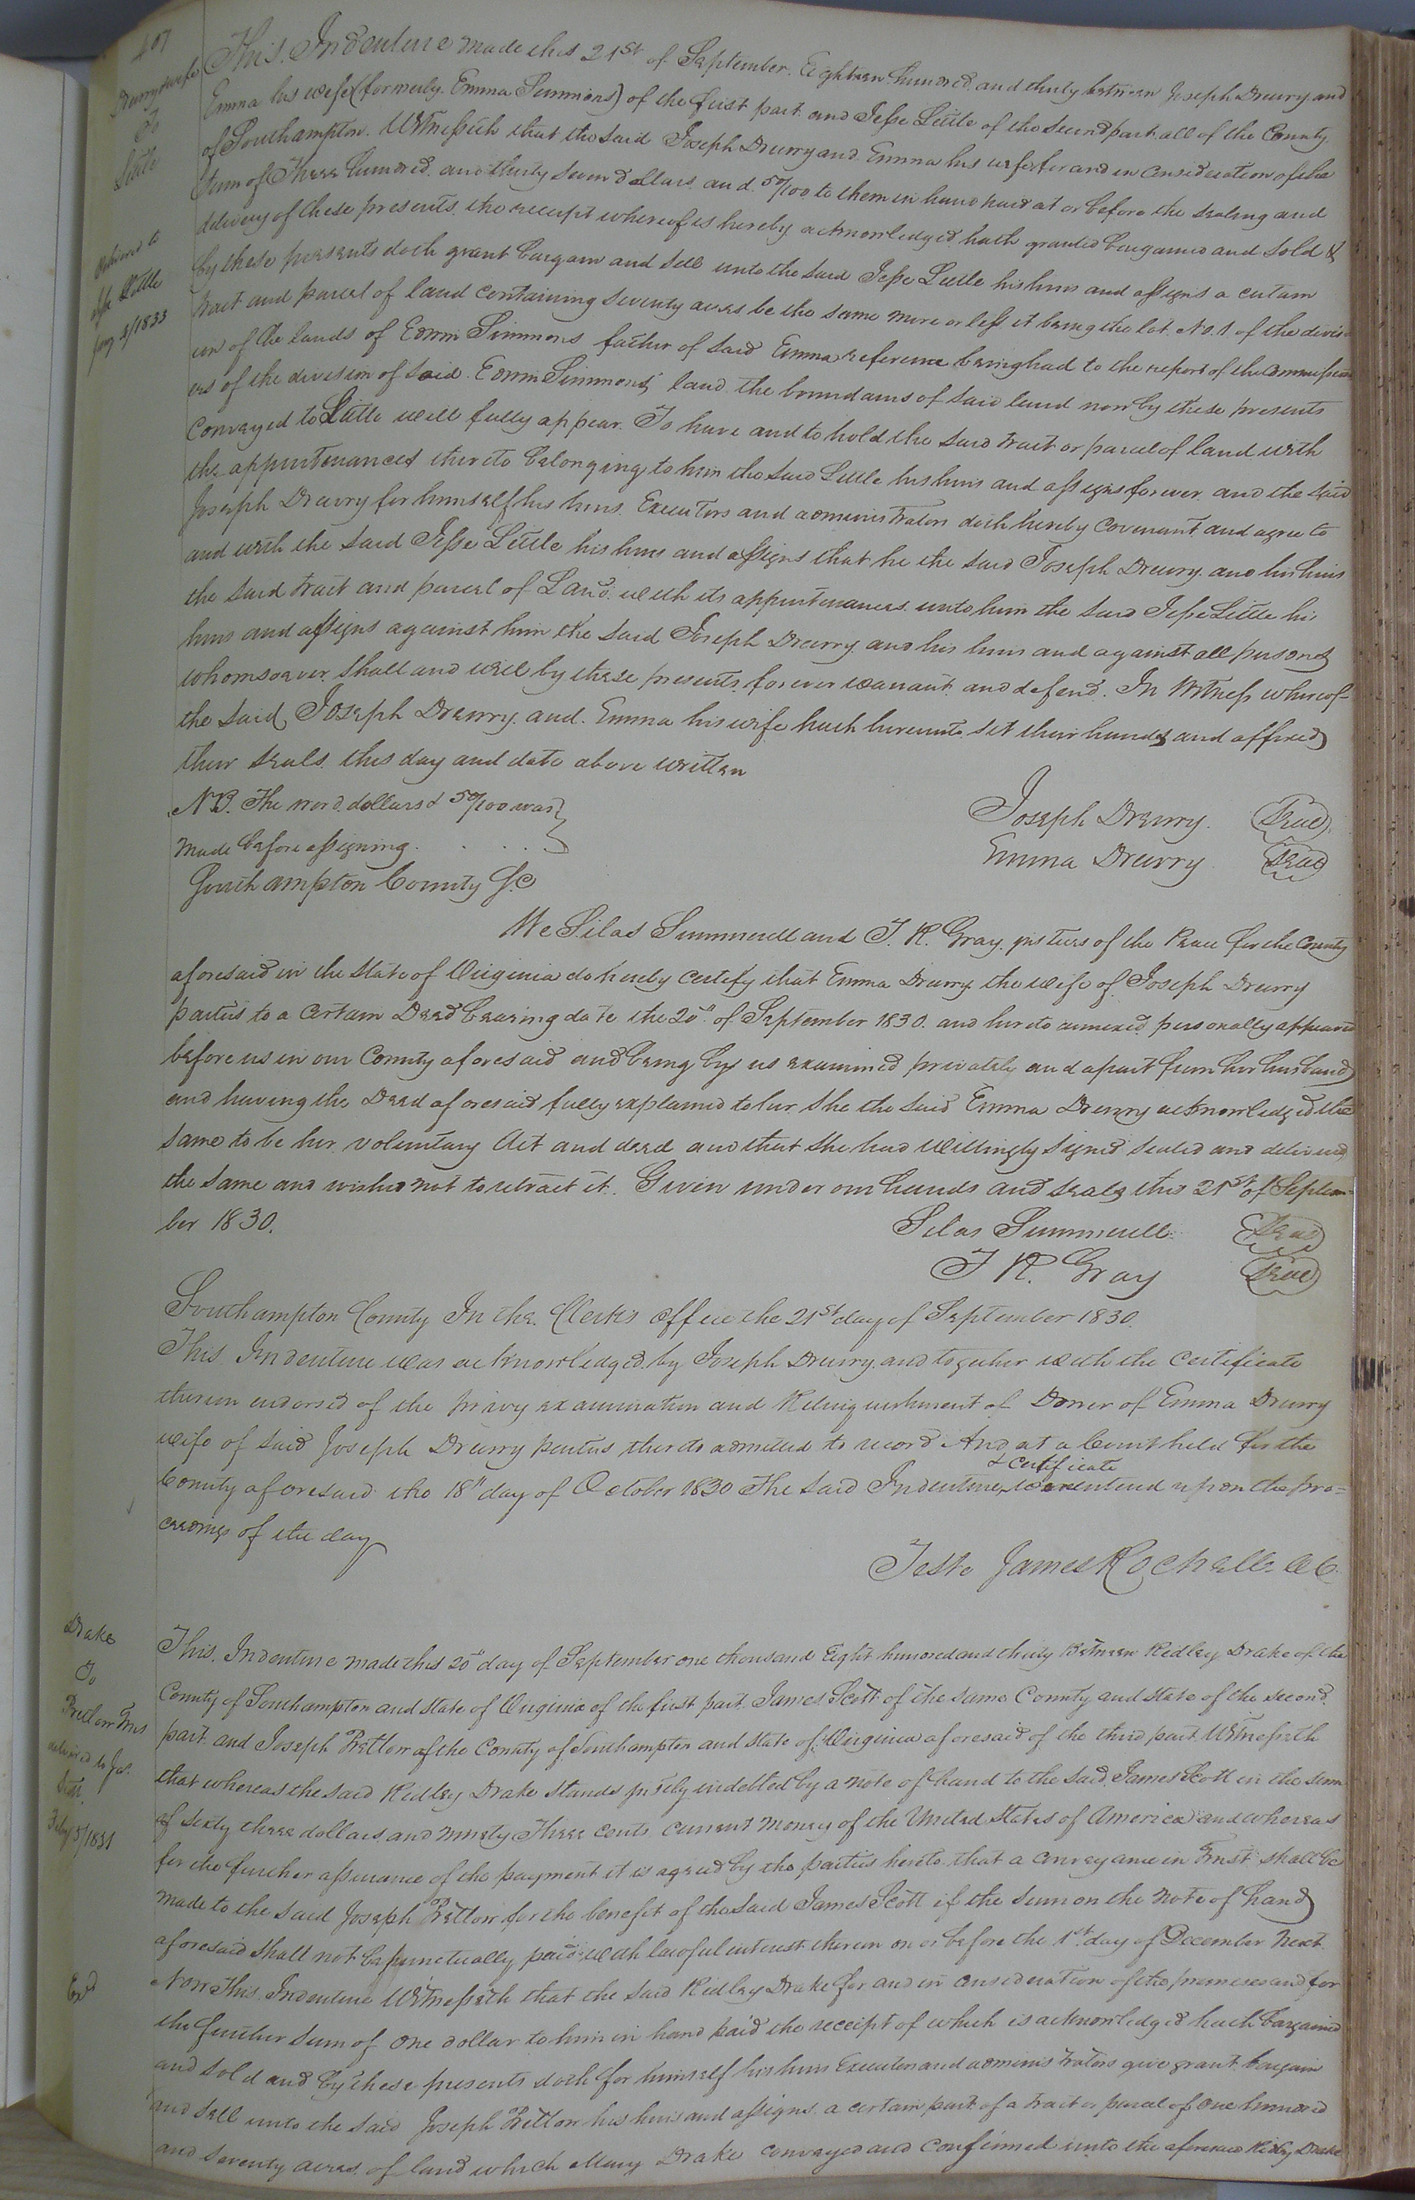 407
Drury & wife
To
Little
Delivered to
Jesse Little
Jany 3/1833
This Indenture made this 21st of September Eighteen hundred and thirty between Joseph Drewry and
Emma his wife (formerly Emma Simmons) of the first part and Jesse Little of the second part all of the County
of Southampton. Witnesseth that the said Joseph Drewry and Emma his wife for and in consideration of the
Sum of Three hundred and thirty seven dollars and 50/100 to them in hand paid at or before the sealing and
delivery of these presents the receipt whereof is hereby acknowledged hath granted bargained and sold &
by these presents doth grant bargain and sell unto the said Jesse Little his heirs and assigns a certain
tract and parcel of land containing seventy acres be the same more or less it being the lot No. 1 of the divis-
ion of the lands of Edwin Simmons father of said Emma reference being had to the report of the Commission
ers of the division of said Edwin Simmons' land the boundaries of said land now by these presents
Conveyed to Little will fully appear. To have and to hold the said tract or parcel of land with
the appurtenances thereto belonging to him the said Little his heirs and assigns forever and the said
Joseph Drewry for himself his heirs Executors and administrators doth hereby covenant and agree to
and with the said Jesse Little his heirs and assigns that he the said Joseph Drewry and his heirs
the said tract and parcel of Land with its appurtenances unto him the said Jesse Little his
heirs and assigns against him the said Joseph Drewry and his heirs and against all persons
whomsoever shall and will by these presents forever warrant and defend. In Witness whereof
the said Joseph Drewry and Emma his wife hath hereunto set their hands and affixed
their seals this day and date above written
N.B. The word dollars & 50/100 was
made before assigning.
Joseph Drewry. Seal
Emma Drewry Seal
Southampton County Sc
We Silas Summerell and T. R. Gray justices of the Peace for the County
aforesaid in the State of Virginia do hereby certify that Emma Drewry the wife of Joseph Drewry
parties to a certain Deed bearing date the 20th of September 1830 and hereto annexed personally appeared
before us in our County aforesaid and being by us examined privately and apart from her husband
and having the Deed aforesaid fully explained to her she the said Emma Drewry acknowledged the
same to be her voluntary Act and deed and that she had willingly signed sealed and delivered
the same and wished not to retract it. Given under our hands and seals this 21st of Septem-
ber 1830.
Silas Summerell Seal
T R. Gray Seal
Southampton County In the Clerk's office the 21st day of September 1830.
This Indenture was acknowledged by Joseph Drewry and together with the certificate
thereon endorsed of the privy examination and Relinquishment of Dower of Emma Drewry
wife of said Joseph Drewry parties thereto admitted to record And at a Court held for the
& certificate
County aforesaid the 18th day of October 1830 The said Indenture were entered upon the pro=
ceedings of the day
Teste James Rochelle CC
Drake
To
Pretlow Trus
delivered to Jas.
Scott
Feby 5/1831
Exd
This Indenture made this 20th day of September one thousand Eight hundred and thirty Between Ridley Drake of the
County of Southampton and state of Virginia of the first part James Scott of the same County and state of the second
part and Joseph Pretlow of the County of Southampton and state of Virginia aforesaid of the third part Witnesseth
that whereas the said Ridley Drake stands justly indebted by a note of hand to the said James Scott in the sum
of sixty three dollars and ninety Three cents current money of the United States of America and whereas
for the further assurance of the payment it is agreed by the parties hereto that a conveyance in Trust shall be
made to the said Joseph Pretlow for the benefit of the said James Scott if the sum on the note of hand
aforesaid shall not be punctually paid with lawful interest thereon on or before the 1st day of December next
Now This Indenture Witnesseth that the said Ridley Drake for and in consideration of the premises and for
the further sum of one dollar to him in hand paid the receipt of which is acknowledged hath bargained
and sold and by these presents doth for himself his heirs Executors and administrators give grant bargain
and sell unto the said Joseph Pretlow his heirs and assigns a certain part of a tract or parcel of one hundred
and seventy acres of land which Mary Drake conveyed and confirmed unto the aforesaid Ridley Drake